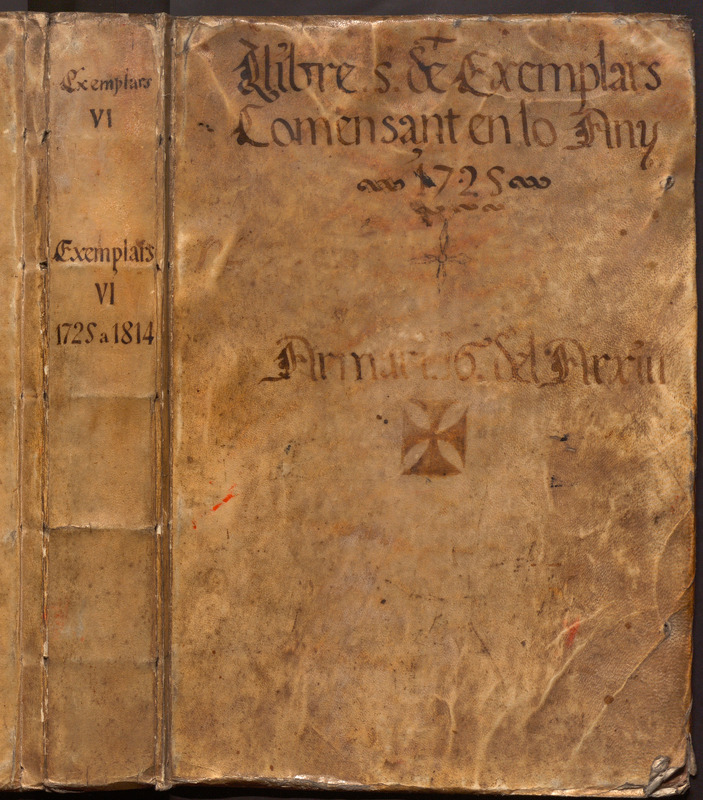 Exemplars
VI
Exemplars
VI
1725 a 1814
Llibre. s. de Exemplars
Comensant en lo Any
1725
Armari 6. del Arxiu